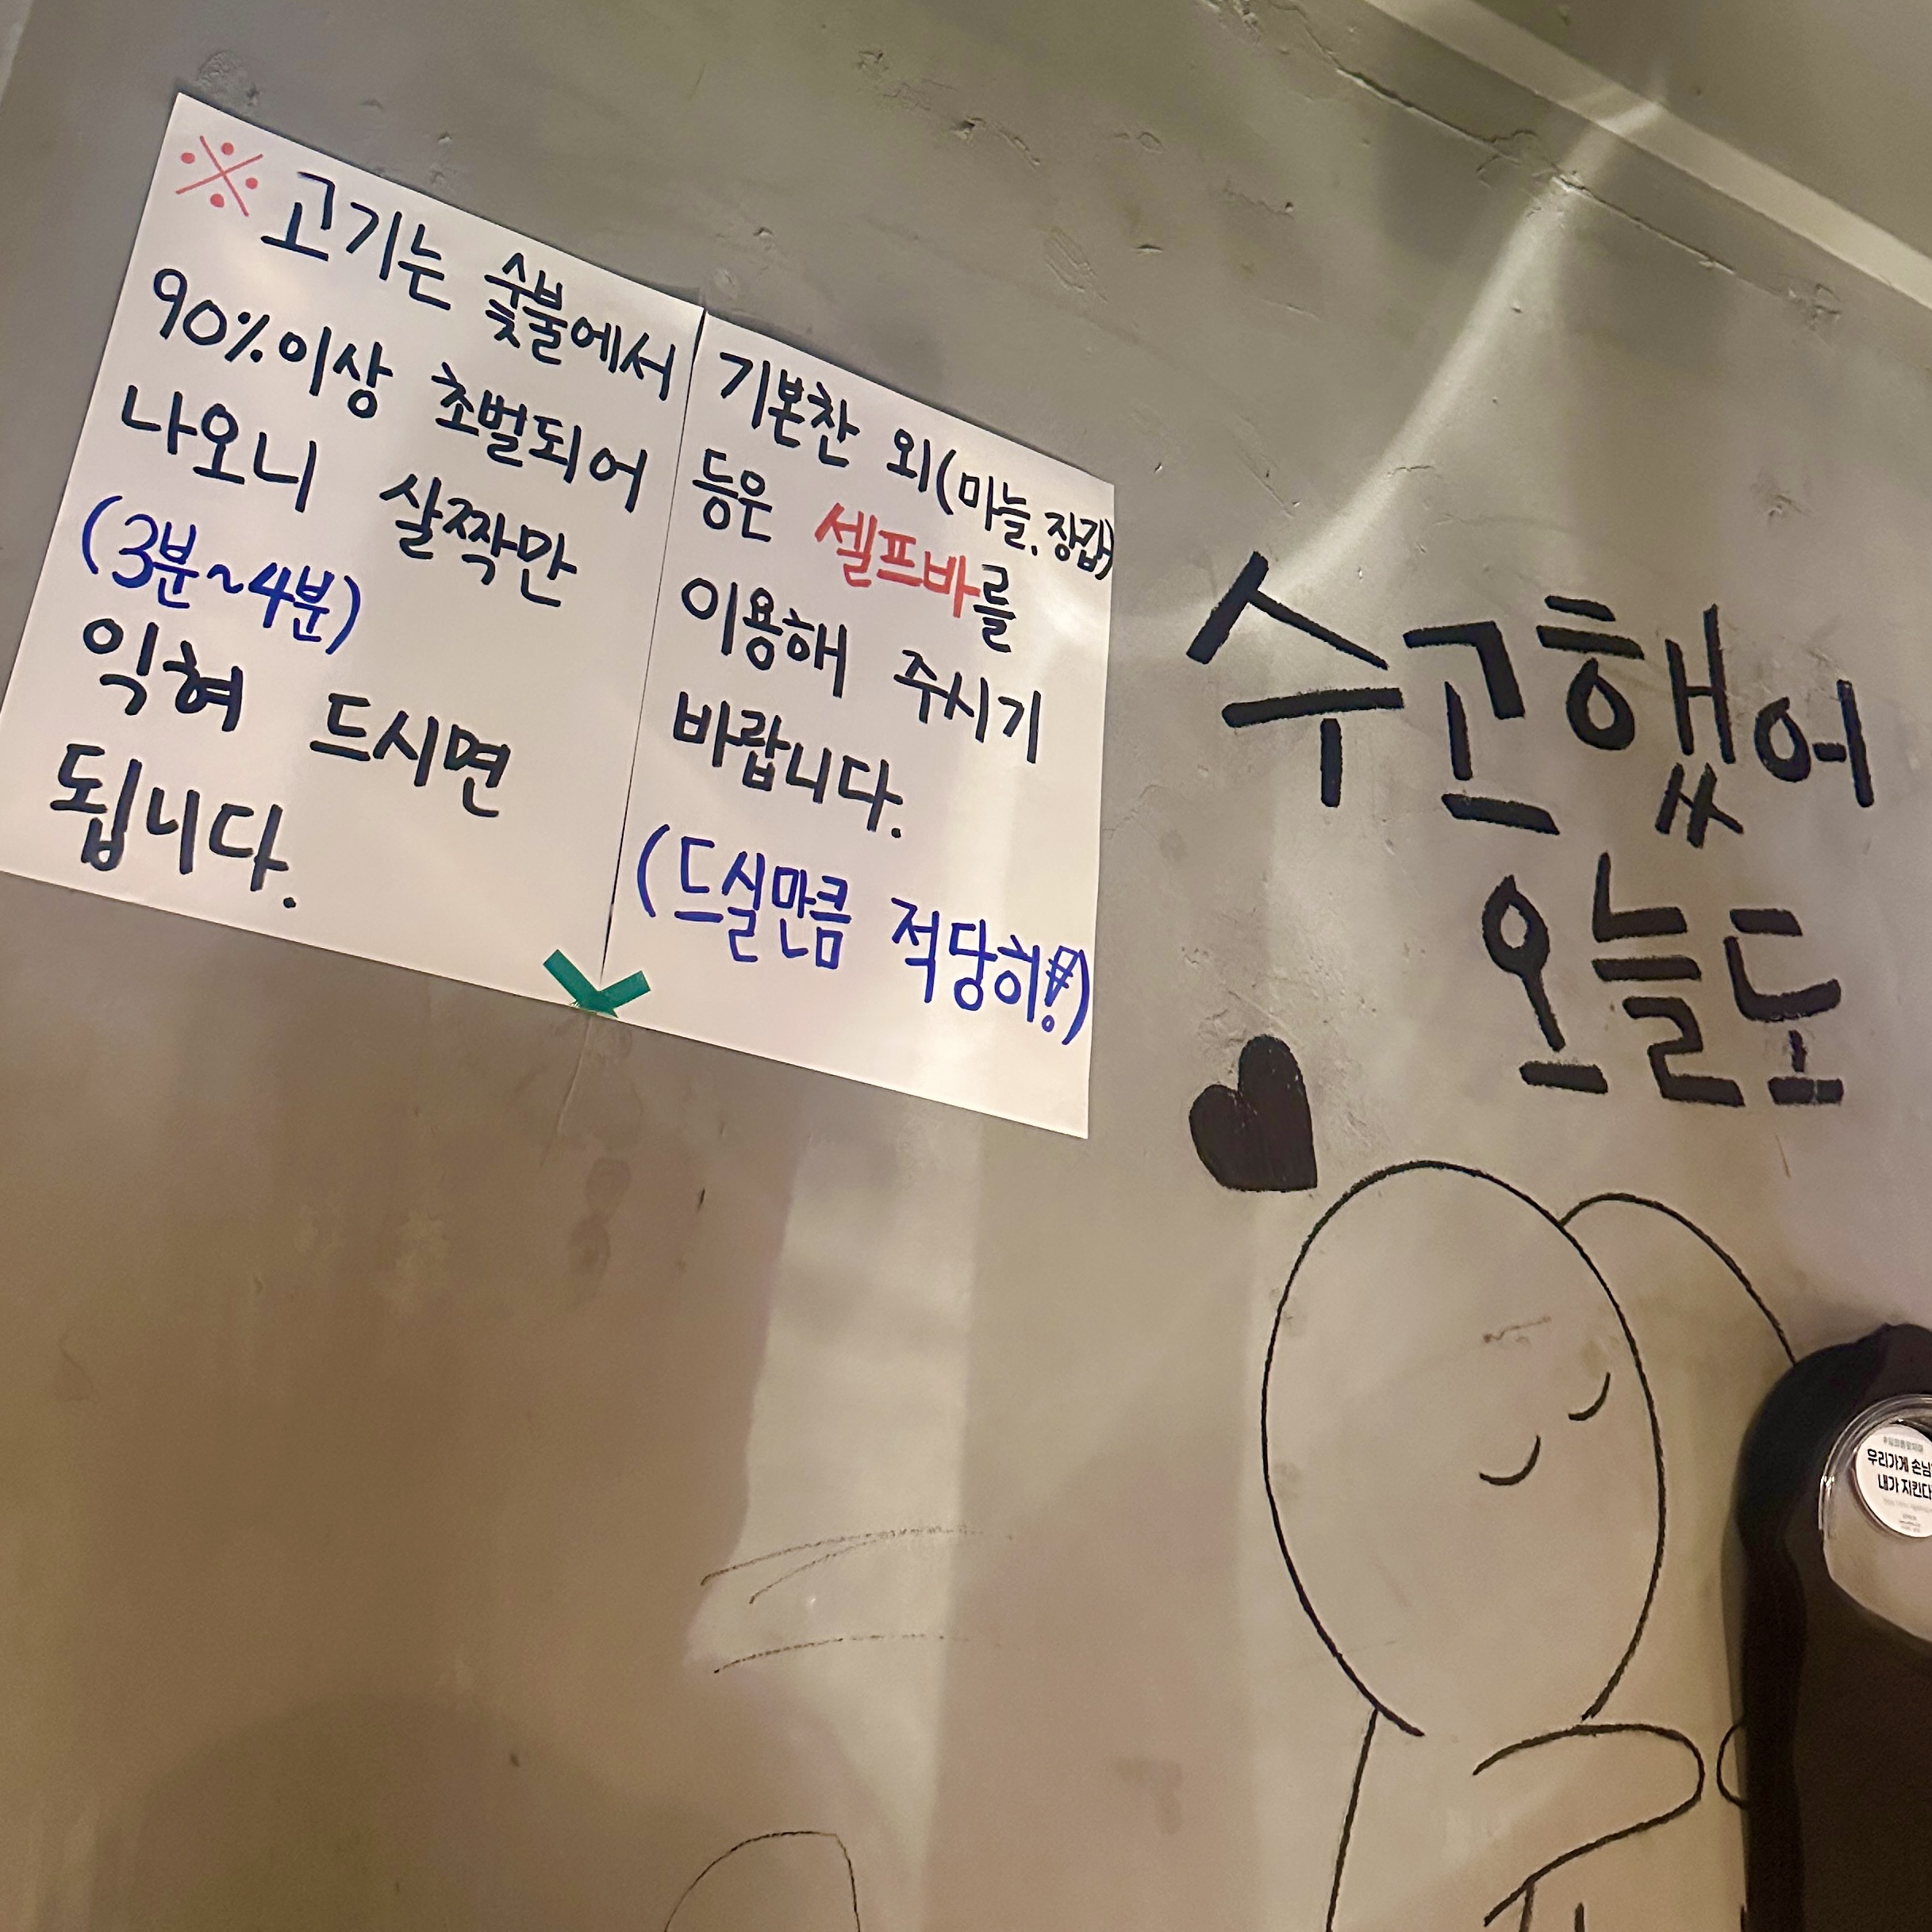 ※ 고기는 숯불에서
90%이상 초벌되어
나오니 살짝만
(3분~4분)
익혀 드시면
됩니다.
기본찬 외(마늘, 장갑)
등은 셀프바를
이용해 주시기
바랍니다.
(드실만큼 적당히!)
수고했어
오늘도
우리가게 손님
내가 지킨다